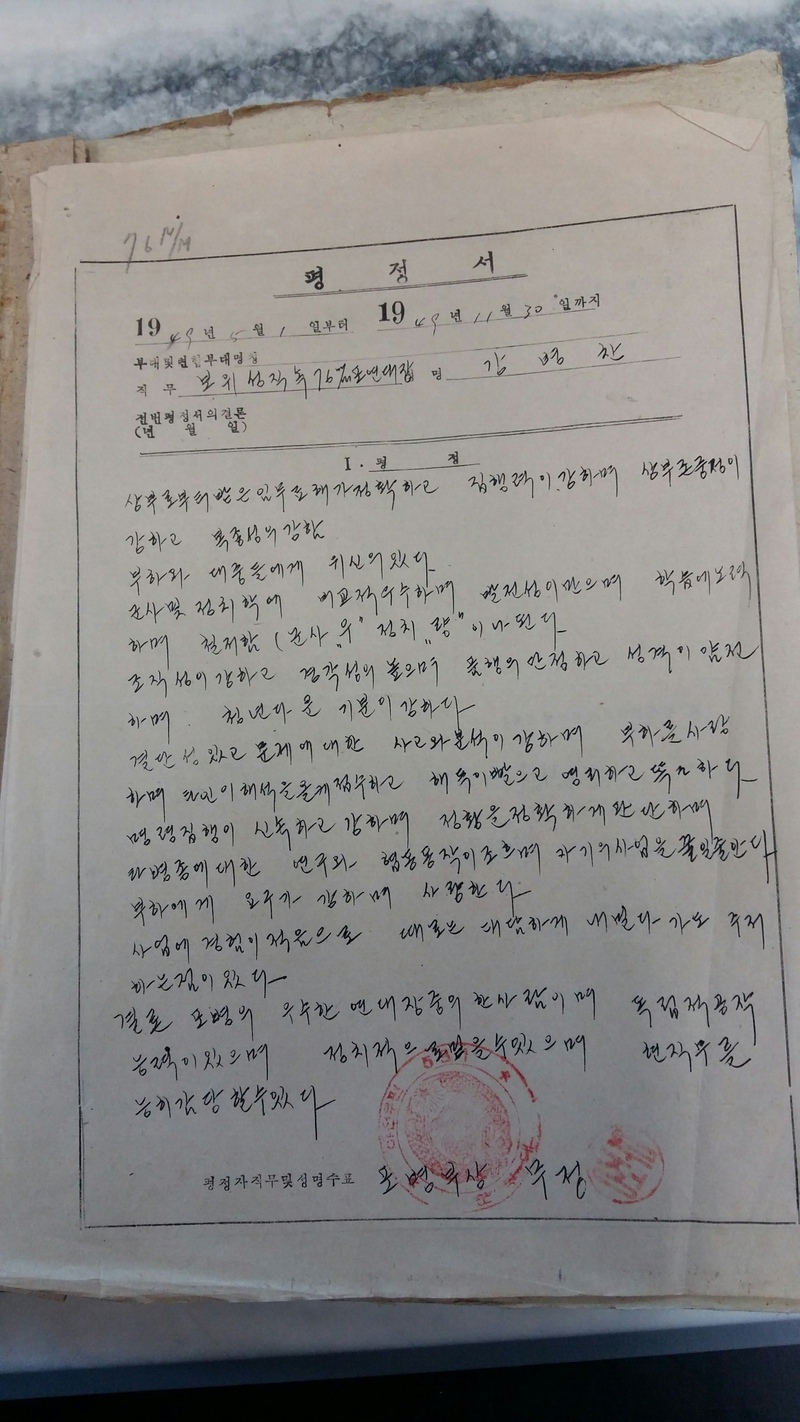 76 M/M
평 정 서
1949년 5월 1일부터 1949년 11월 30일까지
부대및련합부대명칭
직무 보위성직속76㎜포연대장 명 김병찬
전번평정서의결론
(년 월 일)
I. 평 정
상부로부터받은임무료해가정확하고 집행력이강하며 상부존중정이
강하고 복종성의강함
부하와 대중들에게 위신의있다
군사및정치학에 비교적우수하며 발전성이만으며 학습에노력
하며 철저함(군사 "우" 정치 "량"이나된다
조직성이강하고 경각성의높으며 품행의안정하고 성격이얌전
하며 청년다운 기분이강하다
결단성있고문제에대한 사고와분석이강하며 부하를사랑
하며 타인이해석을올케접수하고 해독이빨으고영리하고똑똑하다
명령집행이 신속하고강하며 정황을정확하게판단하며
타병종에대한 연구와 협동동작이조흐며자기의사업을꿀인줄안다
부하에게 요구가강하며 사랑한다
사업에경험이적음으로 때로는대담하게내밀다가도 주저
하는점이있다
결론 포병의 우수한연대장중의한사람이며 독립적공작
능력이있으며 정치적으로믿을수있으며 현직무를
능히감당할수있다
평정자직무및성명수표 포병부상 무정